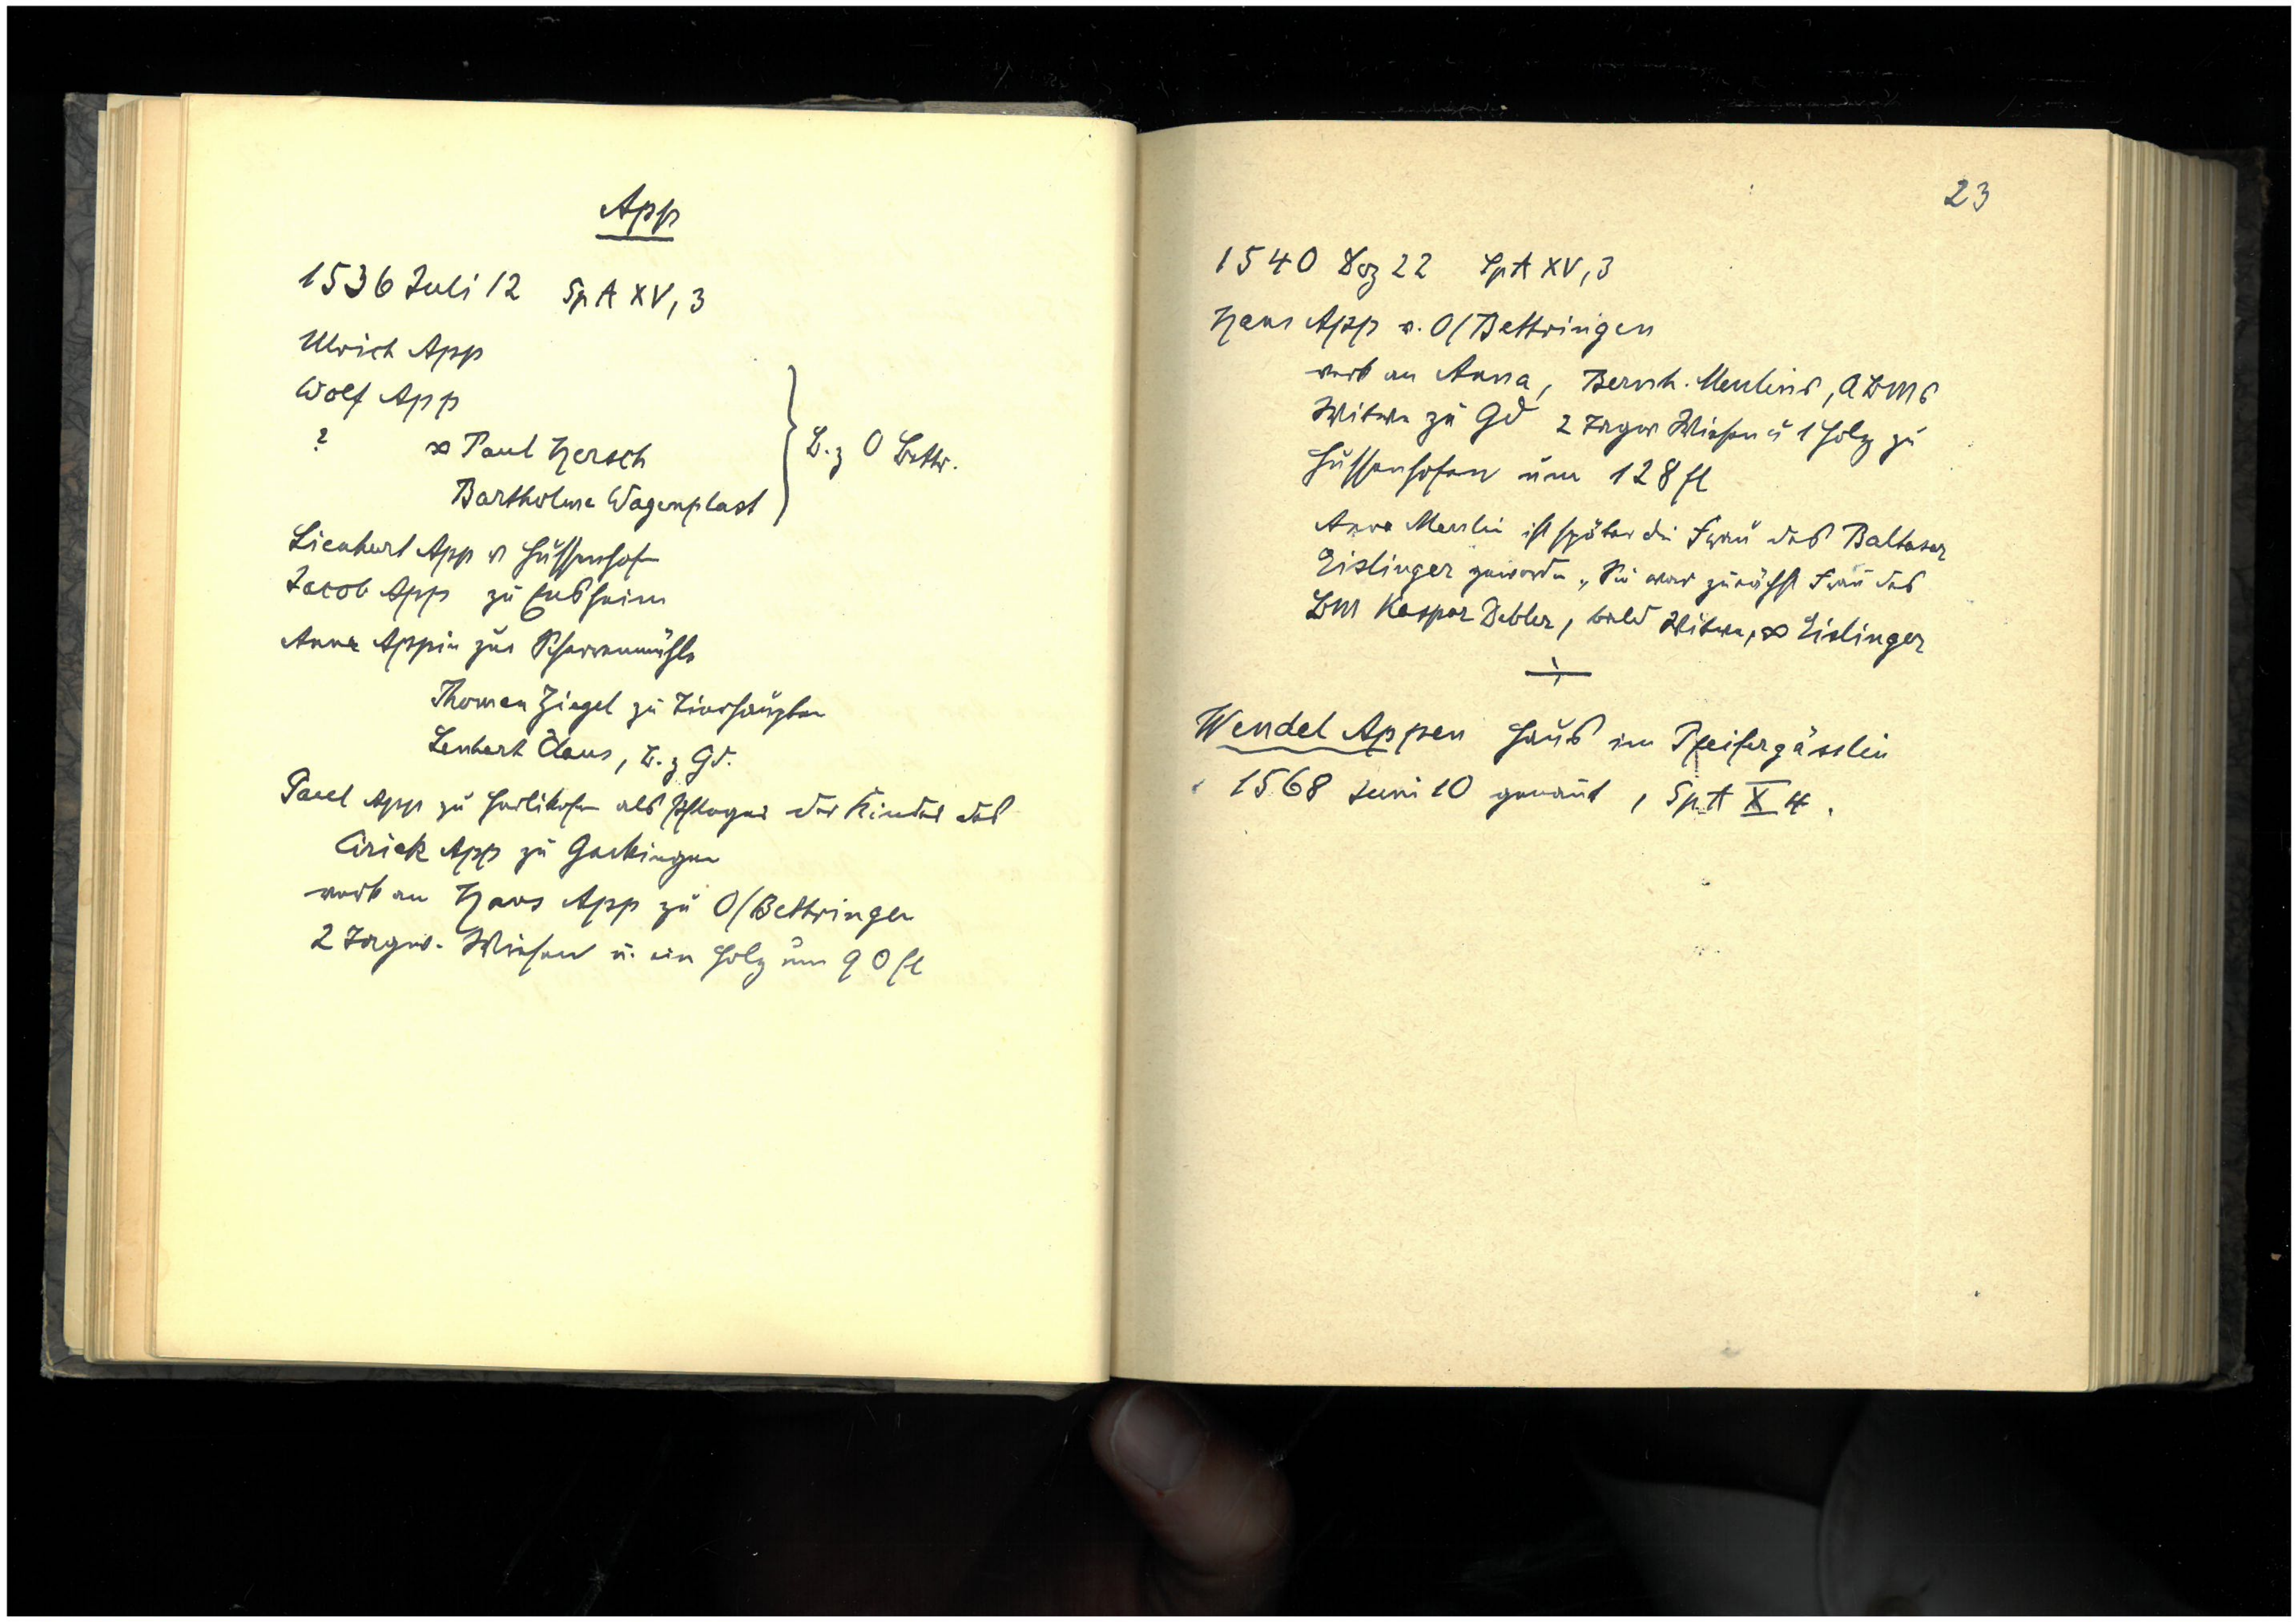 App
1536 Juli 12 SpA XV, 3
Ulrich App
Wolf App
? ∞ Paul Hersch
Bartholme Wagenplast
} B. z O Bettr.
Lienhart App v Hussenhofen
Jacob App zu
Anna Appin zur Scherrenmühle
Thoman Ziegel zu Zierhaupten
Lenhart Claus, B. z Gd.
Paul App zu Herlikofen als Pfleger der Kinder des
Cirick App zu
verk an Hans App zu O/Bettringen
2 Tagw. Wiesen u. ein Holz um 90 fl
23
1540 Dez 22 SpA XV, 3
Hans App v. O/Bettringen
verk an Anna, Bernh. Meulins, ABMs
Witwe zu Gd 2 Tagw Wiesen u 1 Holz zu
Hussenhofen um 128 fl
Anna Meulin ist später die Frau des Baltasar
Eislinger geworden, Sie war zunächst Frau des
BM Kaspar Debler, bald Witwe, ∞ Eislinger
Wendel Appen Haus im Pfeifergässlein
1568 Juni 10 genannt, SpA X 4.